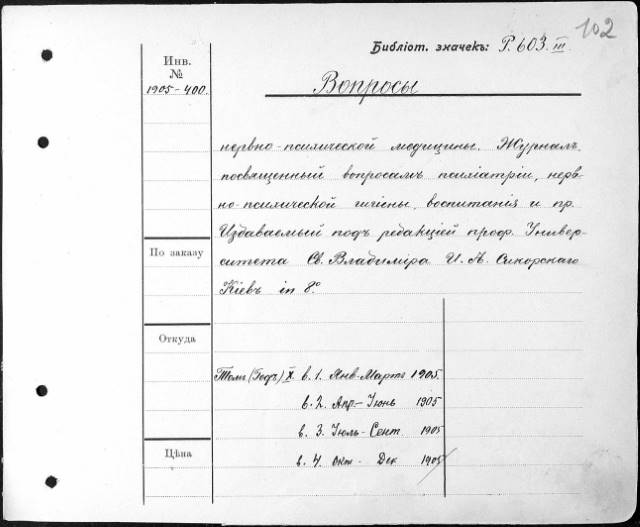 102
Библіот. значекъ: P. 603. III
Инв.
№
1905-400.
Вопросы
нервно-психической медицины. Журналъ,
посвященный вопросамъ психіатріи, нерв
но-психической гигіены, воспитанія и пр.
Издаваемый подъ редакціей проф. Универ-
ситета Св. Владиміра И. А. Сикорскаго
По заказу
Кіевъ in 8°.
Откуда
Томъ (Годъ) X в. 1. Янв-Мартъ 1905.
в. 2. Апр.-Іюнь 1905
в. 3. Іюль-Сент. 1905
в. 4. Окт - Дек 1905
Цѣна